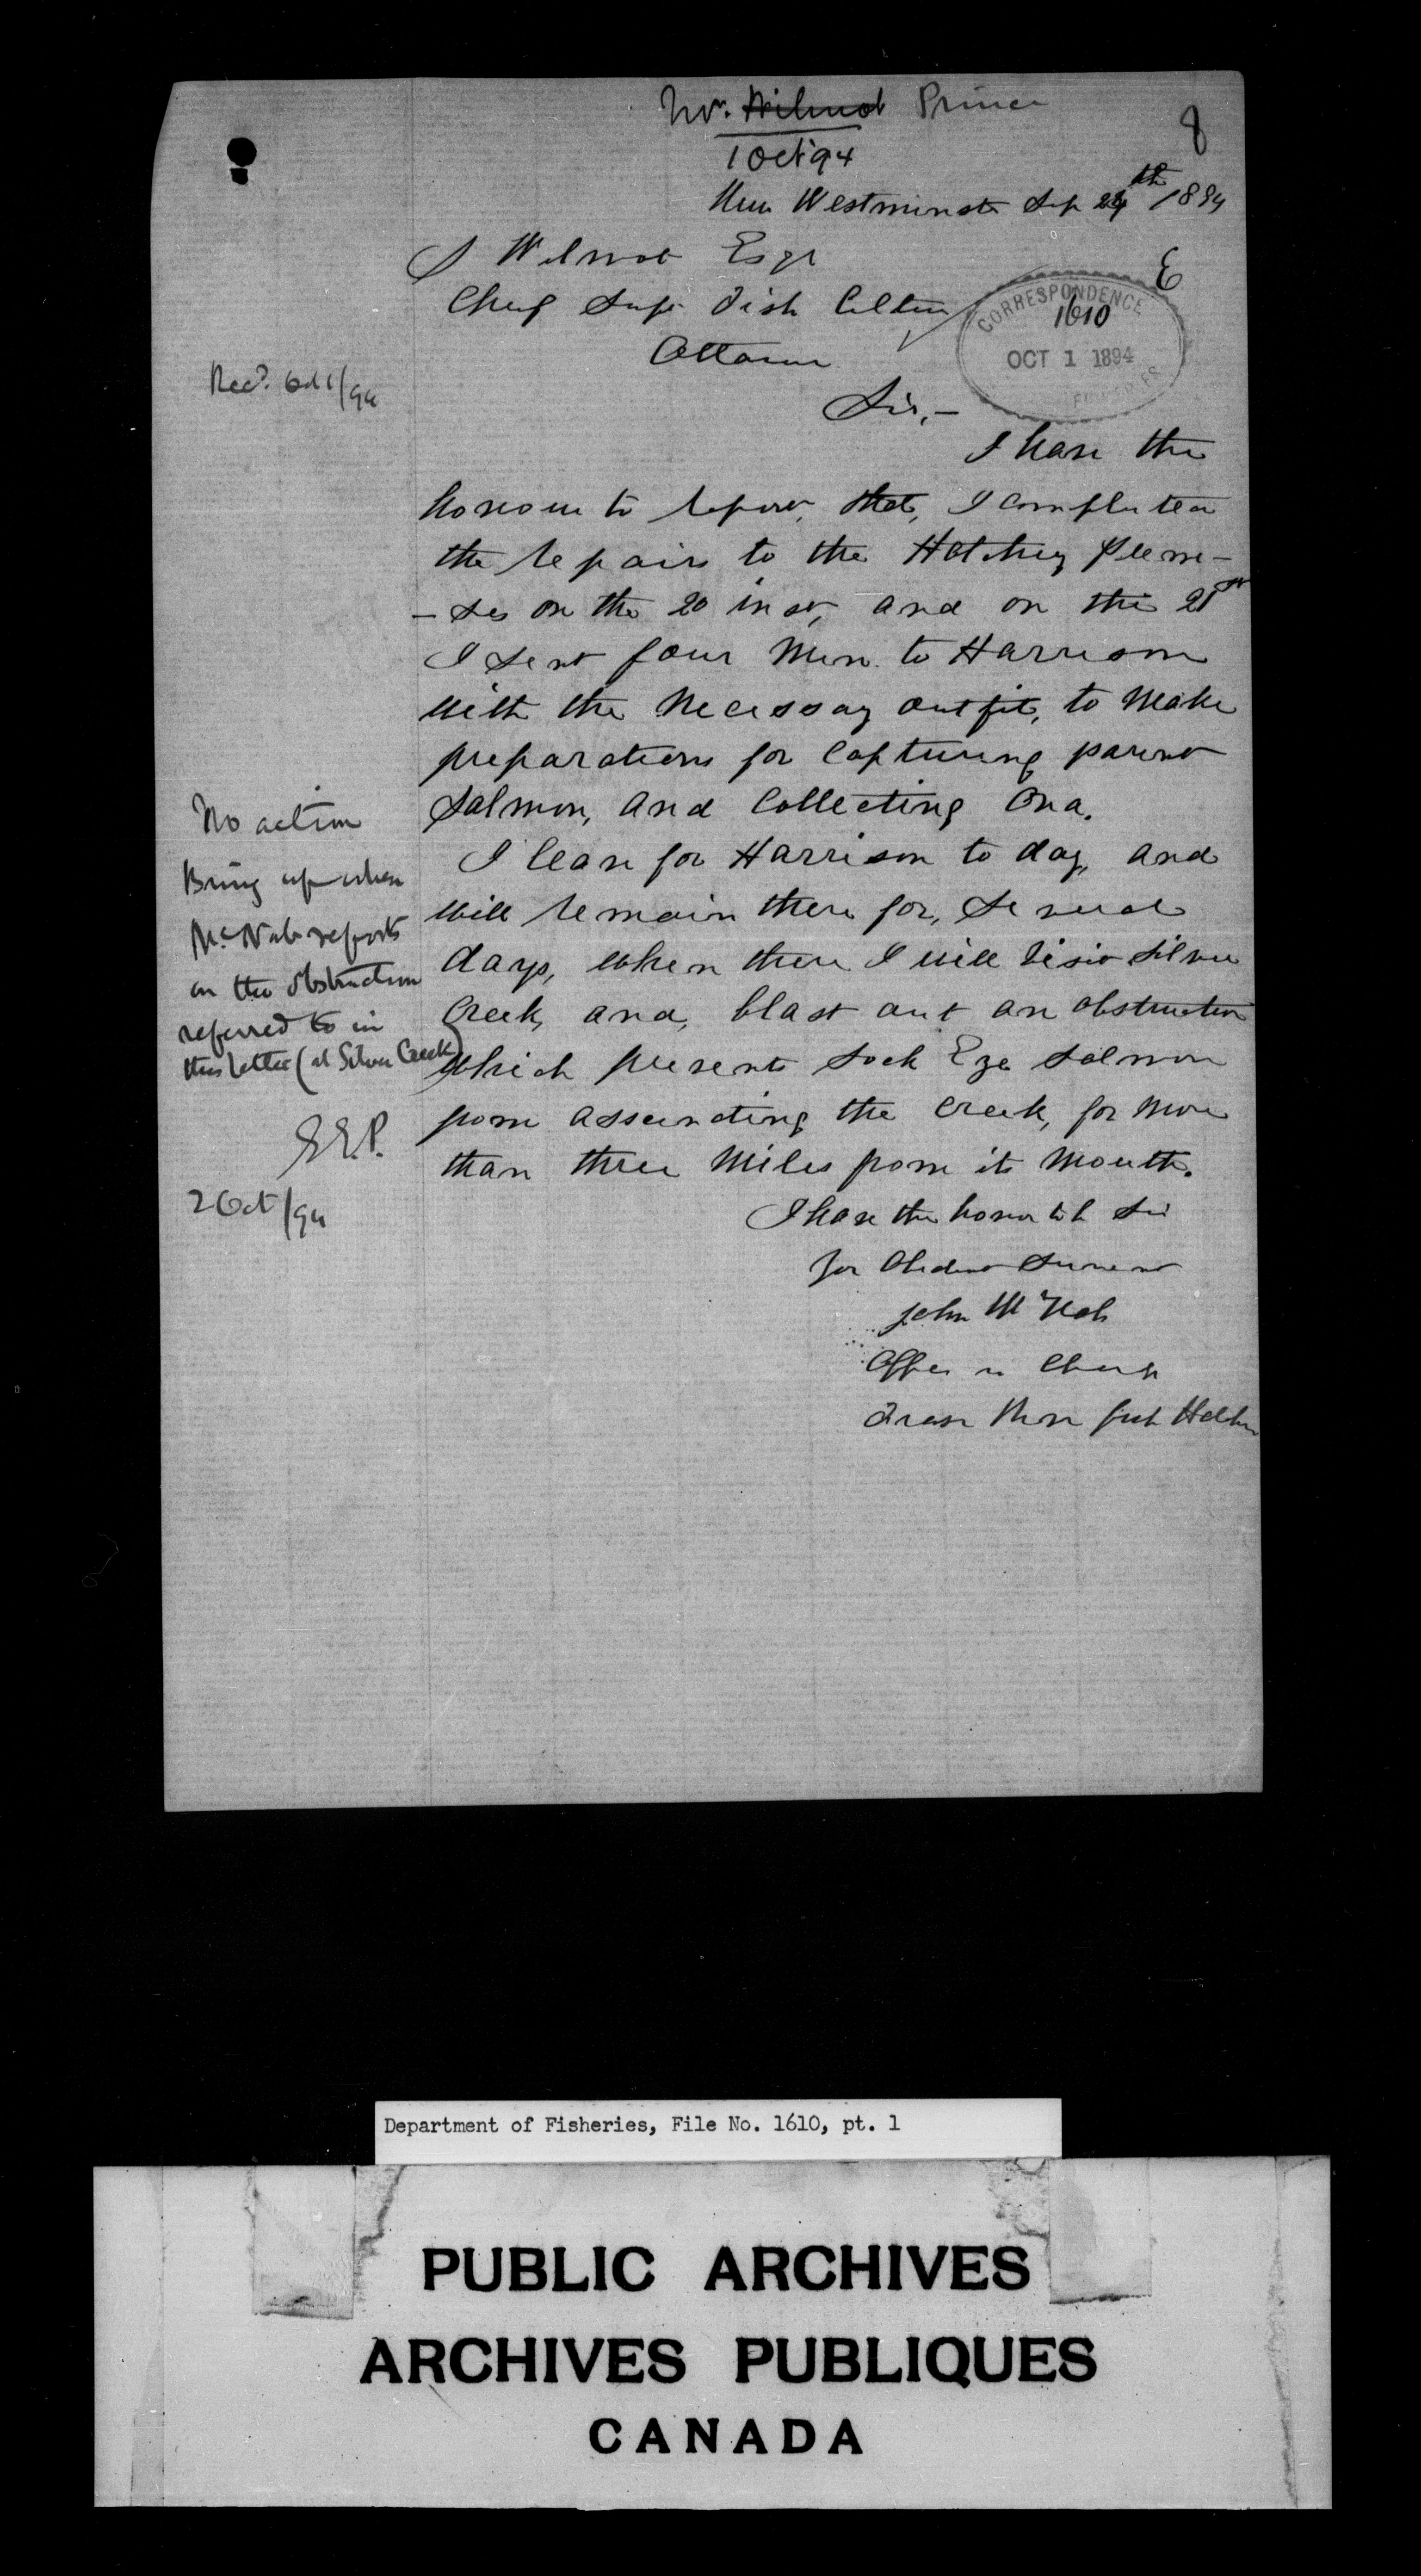 Mr. Wilmot Prince
1 Oct 94
8
New Westminster Sep 24th 1894
S Wilmot Esqr
E
Chief Supt Fish Culture
CORRESPONDENCE
1610
OCT 1 1894
Ottawa
Recd. Oct 1/94
Sir,-
I have the
honour to report, that, I completed
the repairs to the Hatchery Prem-
-ses on the 20 inst, and on the 21st
I sent four Men to Harrison
with the Necessay outfit, to Make
preparations for Capturing parent
Salmon, and Collecting Ova.
I leave for Harrison to day, and
will remain there for, several
days, when there I will visit Silver
Creek, and, blast out an obstruction
which prevents Sock Eye Salmon
from assending the Creek, for More
than three Miles from its Mouth.
I have the honor to be Sir
Your Obedient Servant
John McNab
Officer in Charge
Fraser River fish Hatchery
No action
Bring up when
McNab reports
on the obstruction
referred to in
this letter (at Silver Creek)
E.E.P.
2 Oct/94
Department of Fisheries, File No. 1610, pt. 1
PUBLIC ARCHIVES
ARCHIVES PUBLIQUES
CANADA